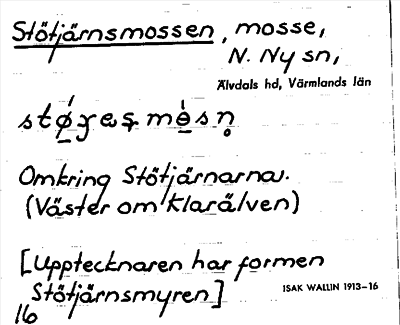 Stötjärnsmossen, mosse,
N. Ny sn,
Älvdals hd, Värmlands län
Omkring Stötjärnarna.
(Väster om Klarälven)
[Upptecknaren har formen
Stötjärnsmyren]
ISAK WALLIN 1913–16
16